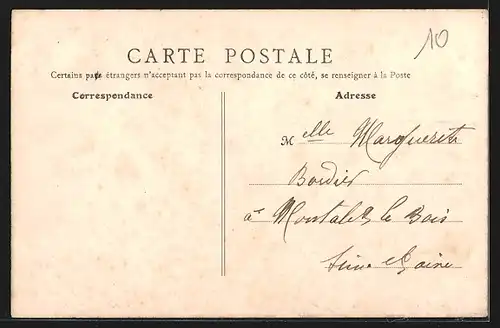 10
CARTE POSTALE
Certains pays étrangers n'acceptant pas la correspondance de ce côté, se renseigner à la Poste
Correspondance
Adresse
Melle Marguerite
Bordier
à Montalet le Bois
Seine et Oise